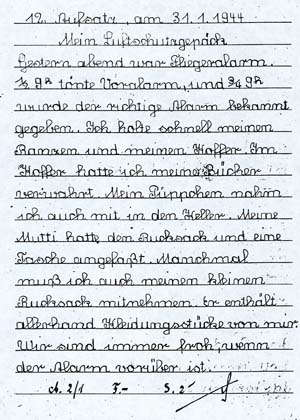 12. Aufsatz, am 31.1.1944
Mein Luftschutzgepäck
Gestern abend war Fliegeralarm.
½ 9ʰ tönte Voralarm, und ¾ 9ʰ
wurde der richtige Alarm bekannt
gegeben. Ich holte schnell meinen
Ranzen und meinen Koffer. Im
Koffer hatte ich meine Bücher
verwahrt. Mein Püppchen nahm
ich auch mit in den Keller. Meine
Mutti hatte den Rucksack und eine
Tasche angefaßt. Manchmal
muß ich auch meinen kleinen
Rucksack mitnehmen. Er enthält
allerhand Kleidungsstücke von mir.
Wir sind immer froh, wenn
der Alarm vorüber ist.
A. 2/1 F.- S. 2-